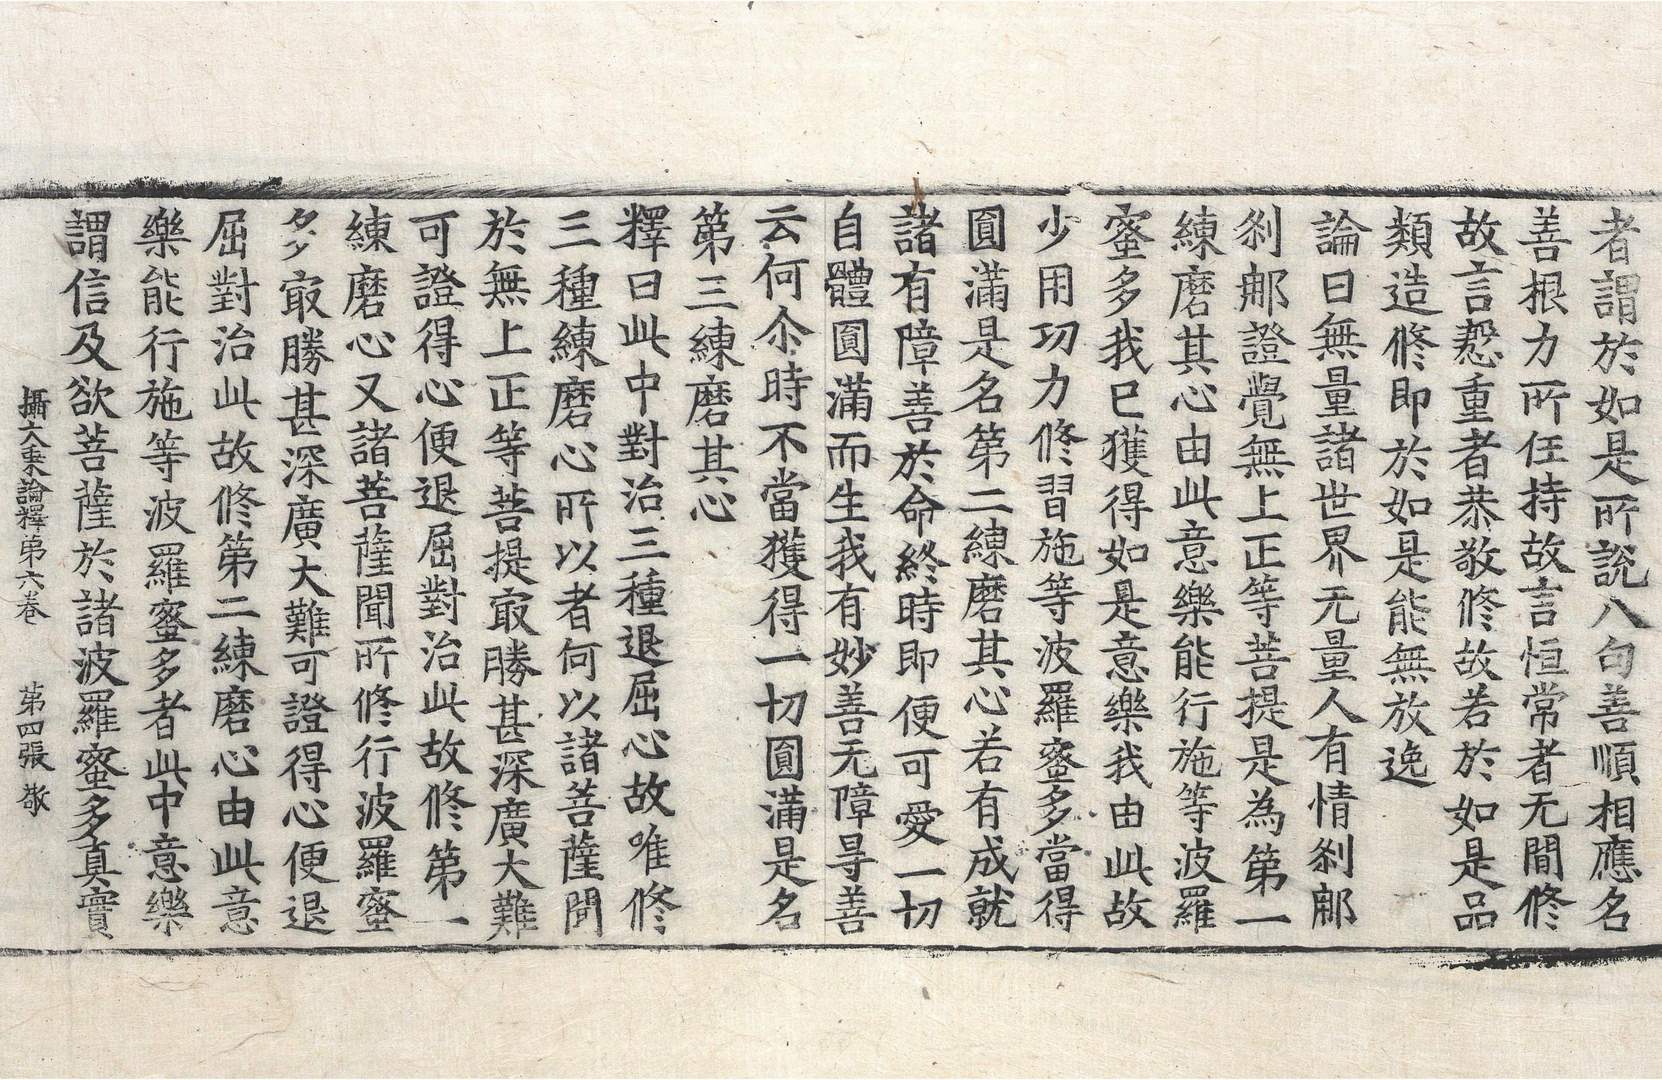 者謂於如是所說八句善順相應名
善根力所任持故言恒常者无間修
故言慇重者恭敬修故若於如是品
類造修即於如是能無放逸
論曰無量諸世界无量人有情剎𨚗
剎𨚗證覺無上正等菩提是為第一
練磨其心由此意樂能行施等波羅
蜜多我已獲得如是意樂我由此故
少用功力修習施等波羅蜜多當得
圓滿是名第二練磨其心若有成就
諸有障善於命終時即便可愛一切
自體圓滿而生我有妙善无障㝵善
云何尒時不當獲得一切圓滿是名
第三練磨其心
釋曰此中對治三種退屈心故唯修
三種練磨心所以者何以諸菩薩聞
於無上正等菩提㝡勝甚深廣大難
可證得心便退屈對治此故修第一
練磨心又諸菩薩聞所修行波羅蜜
多㝡勝甚深廣大難可證得心便退
屈對治此故修第二練磨心由此意
樂能行施等波羅蜜多者此中意樂
謂信及欲菩薩於諸波羅蜜多真實
攝大乘論釋第六卷 第四張 敬